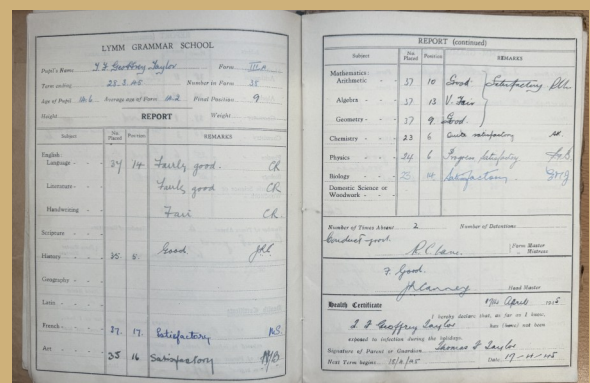 LYMM GRAMMAR SCHOOL
Pupil's Name Geoffrey Taylor Form III A
Term ending 28.3.45 Number in Form 35
Age of Pupil Average age of Form Final Position 9
Height REPORT Weight
Subject No. Placed Position REMARKS
English:
Language 37 14 Fairly good. CR
Literature Fairly good CR.
Handwriting Fair CR.
Scripture
History 35 5 Good.
Geography
Latin
French 37. 17. Satisfactory
Art 35 16 Satisfactory
REPORT (continued)
Subject No. Placed Position REMARKS
Mathematics:
Arithmetic 37 10 Good Satisfactory
Algebra 37 13 V. Fair
Geometry 37 9 Good.
Chemistry 23 6 Quite satisfactory
Physics 24 6 Progress Satisfactory
Biology Satisfactory.
Domestic Science or
Woodwork
Number of Times Absent 2 Number of Detentions
Conduct good.
Form Master
Mistress
F. Good.
Head Master
Health Certificate April 1945
I hereby declare that, as far as I know,
Geoffrey Taylor has (have) not been
exposed to infection during the holidays.
Signature of Parent or Guardian Thomas Taylor
Next Term begins Date